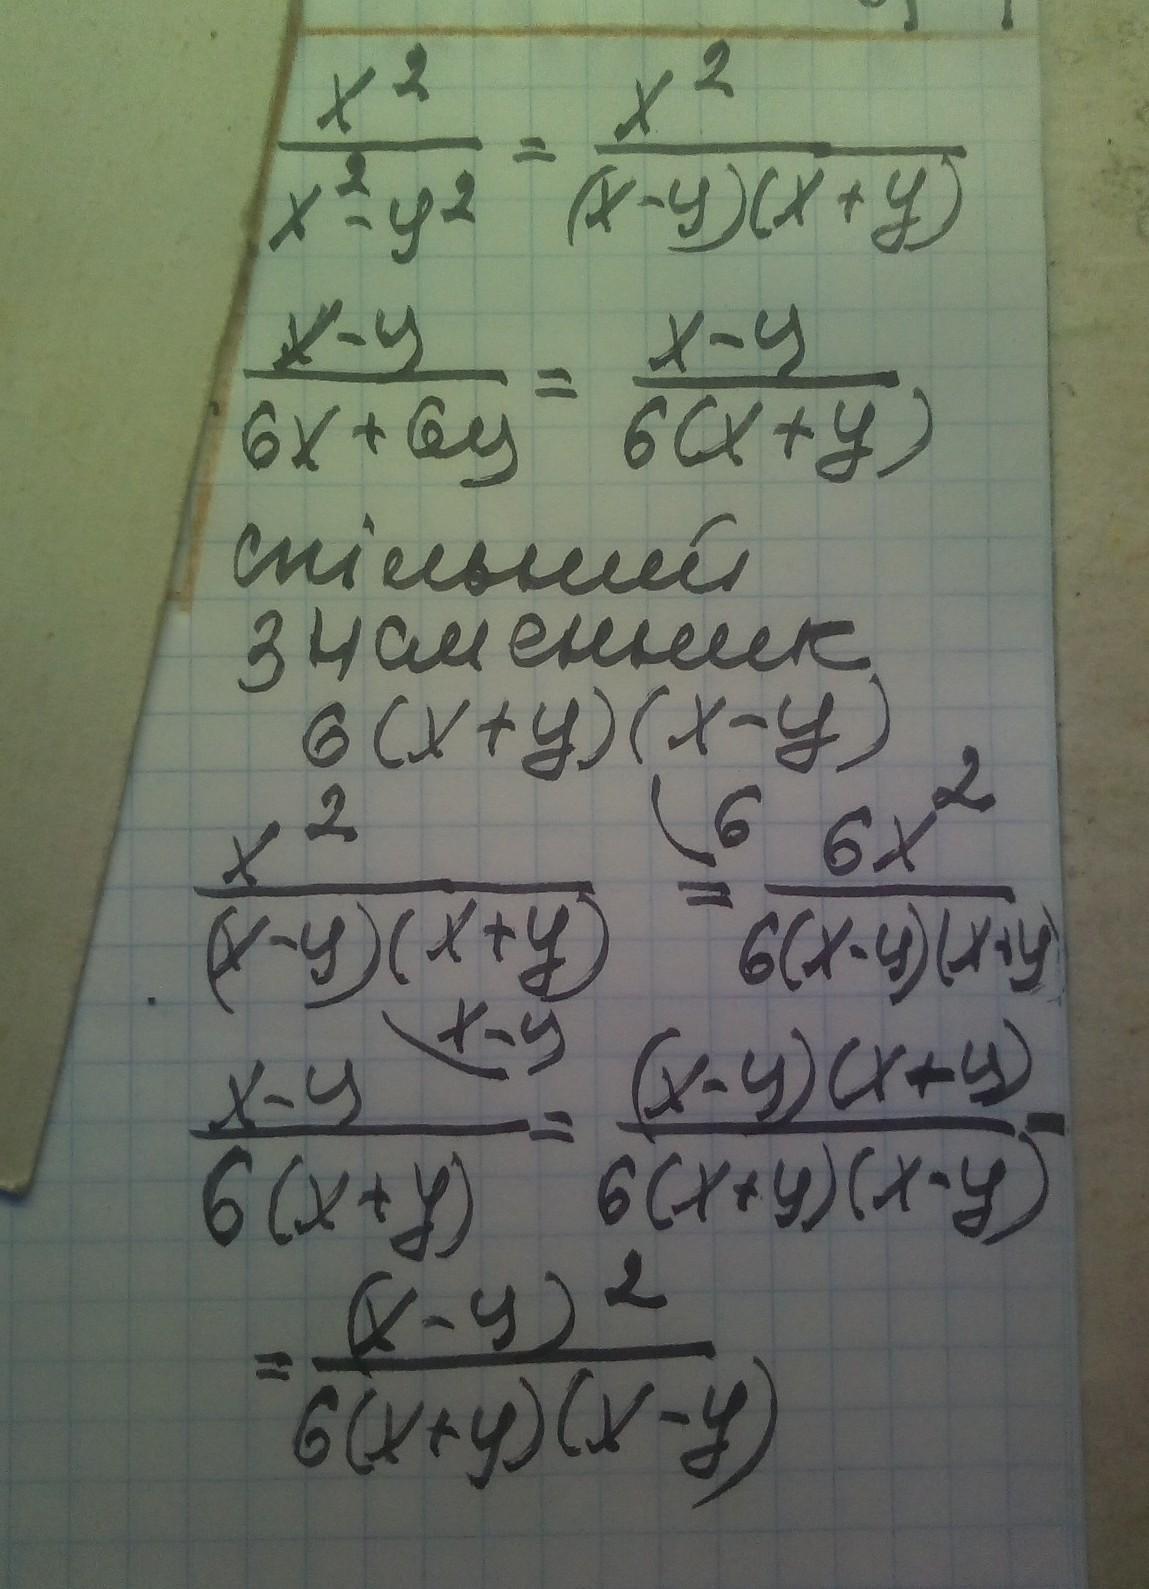 x²/(x²-y²) = x²/((x-y)(x+y))
(x-y)/(6x+6y) = (x-y)/(6(x+y))
спільний
знаменник
6(x+y)(x-y)
x²/((x-y)(x+y)) \6 = 6x²/(6(x-y)(x+y))
(x-y)/(6(x+y)) \x-y = (x-y)(x+y)/(6(x+y)(x-y)) =
= (x-y)²/(6(x+y)(x-y))